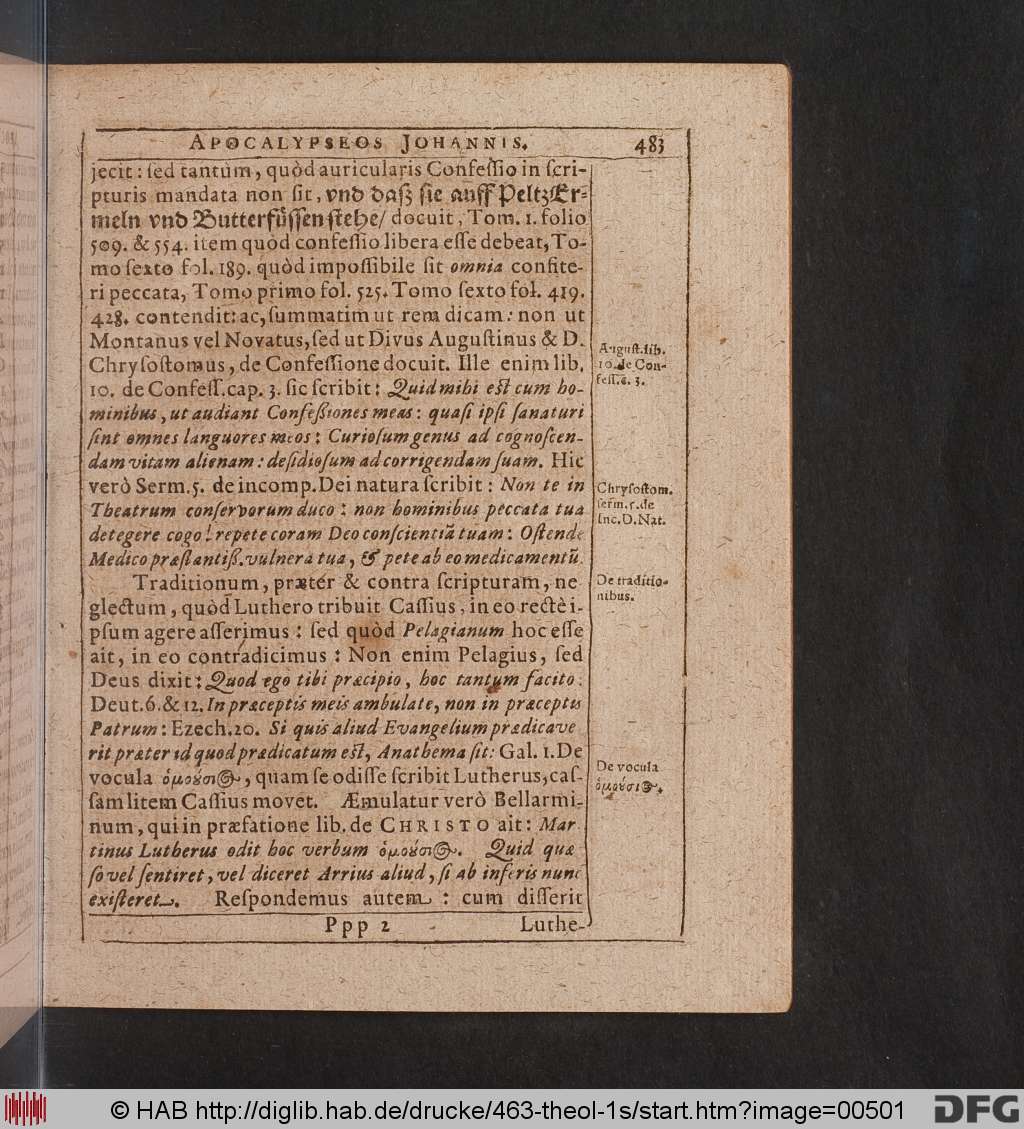 APOCALYPSEOS JOHANNIS. 483
jecit : sed tantùm, quòd auricularis Confessio in scri-
pturis mandata non sit, vnd daß sie auff PeltzEr-
meln vnd Butterfüssen stehe/ docuit, Tom. 1. folio
509. & 554. item quòd confessio libera esse debeat, To-
mo sexto fol. 189. quòd impossibile sit omnia confite-
ri peccata, Tomo primo fol. 525. Tomo sexto fol. 419.
428. contendit: ac, summatim ut rem dicam : non ut
Montanus vel Novatus, sed ut Divus Augustinus & D.
Chrysostomus, de Confessione docuit. Ille enim lib.
10. de Confess. cap. 3. sic scribit : Quid mihi est cum ho-
minibus, ut audiant Confeßiones meas : quasi ipsi sanaturi
sint omnes languores meos : Curiosum genus ad cognoscen-
dam vitam alienam : desidiosum ad corrigendam suam. Hic
verò Serm. 5. de incomp. Dei natura scribit : Non te in
Theatrum conservorum duco : non hominibus peccata tua
detegere cogo ! repete coram Deo conscientiã tuam : Ostende
Medico præstantiß. vulnera tua, & pete ab eo medicamentũ.
Traditionum, præter & contra scripturam, ne
glectum, quòd Luthero tribuit Cassius, in eo rectè i-
psum agere asserimus : sed quòd Pelagianum hoc esse
ait, in eo contradicimus : Non enim Pelagius, sed
Deus dixit : Quod ego tibi præcipio, hoc tantum facito :
Deut. 6. & 12. In præceptis meis ambulate, non in præceptis
Patrum : Ezech. 20. Si quis aliud Evangelium prædicave
rit præter id quod prædicatum est, Anathema sit : Gal. 1. De
vocula ὁμούσιος, quam se odisse scribit Lutherus, cas-
sam litem Cassius movet. Æmulatur verò Bellarmi-
num, qui in præfatione lib. de CHRISTO ait : Mar
tinus Lutherus odit hoc verbum ὁμούσιος. Quid quæ
so vel sentiret, vel diceret Arrius aliud, si ab inferis nunc
existeret. Respondemus autem : cum disserit
Ppp 2 Luthe-
August. lib.
10. de Con-
fess. c. 3.
Chrysostom.
serm. 5. de
Inc. D. Nat.
De traditio-
nibus.
De vocula
ὁμούσιος.
© HAB http://diglib.hab.de/drucke/463-theol-1s/start.htm?image=00501
DFG